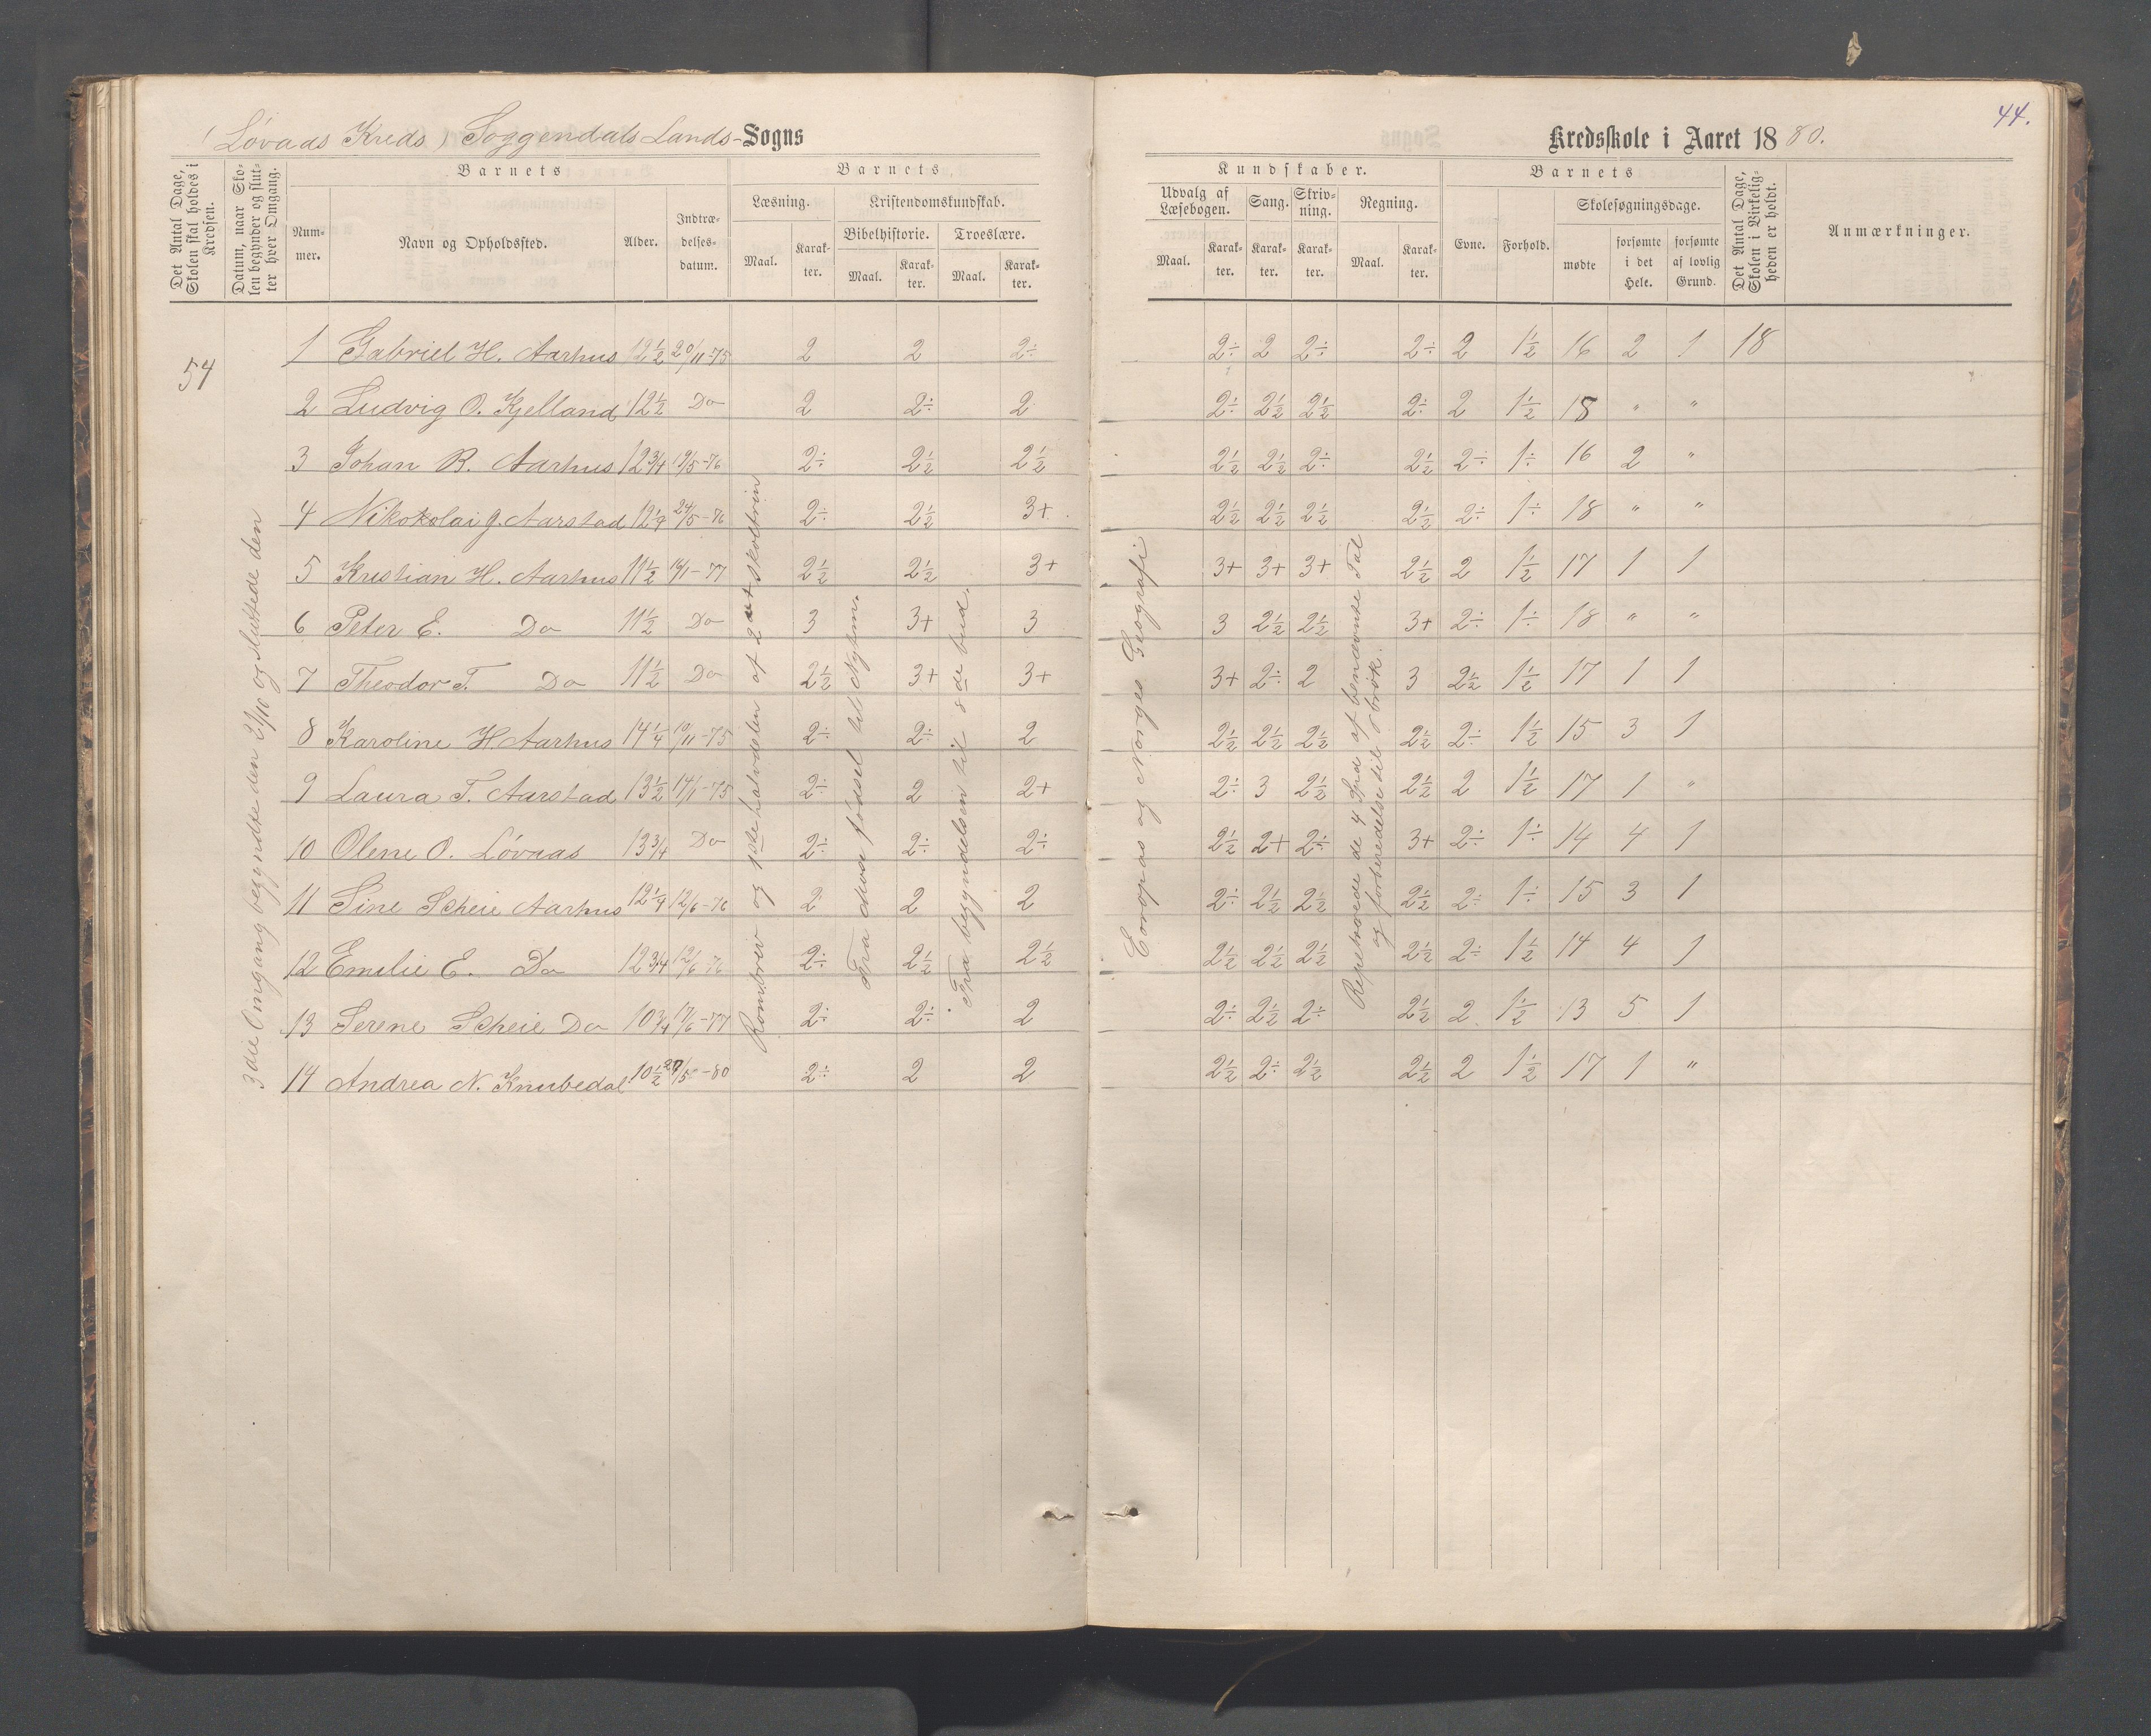 44.
(Lovaas Kreds) Soggendals Lands-Sogns Kredsskole i Aaret 1880.
Det Antal Dage, Skolen skal holdes i Kredsen.
Datum, naar Skolen begynder og slutter hver Omgang.
Barnets
Nummer.
Navn og Opholdssted.
Alder.
Indtrædelsesdatum.
Barnets
Læsning.
Maal.
Karakter.
Kristendomskundskab.
Bibelhistorie.
Maal.
Karakter.
Troeslære.
Maal.
Karakter.
Kundskaber.
Udvalg af Læsebogen.
Maal.
Karakter.
Sang.
Karakter.
Skrivning.
Karakter.
Regning.
Maal.
Karakter.
Barnets
Evne.
Forhold.
Skolesøgningsdage.
mødte
forsømte i det Hele.
forsømte af lovlig Grund.
Det Antal Dage, Skolen i Virkeligheden er holdt.
Anmærkninger.
54
3die Omgang begyndte den 21/10 og sluttede den
og 1ste halvdelen af 2det Skoletrin
Fra fødsel til
Fra begyndelsen til 8de bud.
Europas og Norges Geografi
Repeterede de 4 Spd af benævnte Tal
og forberedelse til brøk.
1 Gabriel H. Aarhus 12½ 20/11-75 2 2 2÷ 2÷ 2 2÷ 2÷ 2 1½ 16 2 1 18
2 Ludvig O. Kjelland 12½ Do 2 2÷ 2 2÷ 2½ 2½ 2÷ 2 1½ 18 " "
3 Johan R. Aarhus 12¾ /5-76 2÷ 2½ 2½ 2½ 2½ 2÷ 2½ 2÷ 1÷ 16 2 "
4 Nikokolai J. Aarstad 12¼ 24/5-76 2÷ 2½ 3+ 2½ 2½ 2½ 2½ 2÷ 1÷ 18 " "
5 Kristian H. Aarhus 11½ /1-77 2½ 2½ 3+ 3+ 3+ 3+ 2½ 2 1½ 17 1 1
6 Peter E. Do 11½ Do 3 3+ 3 3 2½ 2½ 3+ 2÷ 1÷ 18 " "
7 Theodor T. Do 11½ Do 2½ 3+ 3+ 3+ 2÷ 2 3 2½ 1½ 17 1 1
8 Karoline H Aarhus 14¼ /11-75 2÷ 2÷ 2 2½ 2½ 2½ 2½ 2÷ 1½ 15 3 1
9 Laura T. Aarstad 13½ 14/1-75 2÷ 2 2+ 2÷ 3 2½ 2½ 2 1½ 17 1 "
10 Olene O. Lovaas 13¾ Do 2÷ 2÷ 2÷ 2½ 2+ 2÷ 3+ 2÷ 1÷ 14 4 1
11 Sine Scheie Aarhus 12¼ 12/6-76 2 2 2 2÷ 2½ 2½ 2½ 2÷ 1÷ 15 3 1
12 Emilie E. Do 12¾ 12/6-76 2÷ 2½ 2½ 2½ 2½ 2½ 2½ 2÷ 1½ 14 4 1
13 Serene Scheie Do 10¾ 17/6-77 2÷ 2÷ 2 2÷ 2½ 2÷ 2½ 2 1½ 13 5 1
14 Andrea N. Knubedal 10½ 27/5-80 2÷ 2 2 2½ 2÷ 2½ 2½ 2 1½ 17 1 "